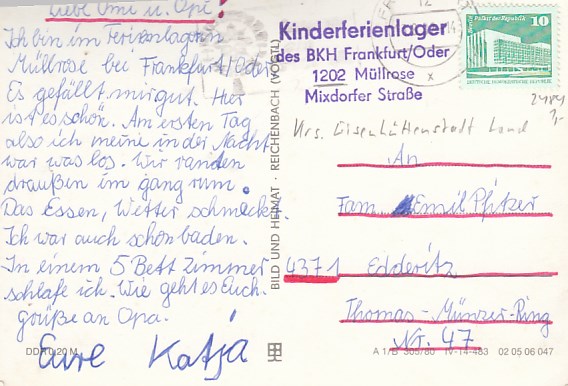 Liebe Omi u. Opi!
Ich bin im Ferienlager in
Müllrose bei Frankfurt/Oder
Es gefällt mir gut. Hier
ist es schön. Am ersten Tag
also ich meine in der Nacht
war was los. Wir randen
draußen im gang rum.
Das Essen, Wetter schmeckt.
Ich war auch schon baden.
In einem 5 Bett zimmer
schlafe ich. Wie geht es Euch.
grüße an Opa.
Eure Katja
DD 10/20 M
BILD UND HEIMAT · REICHENBACH (VOGTL)
Kinderferienlager
des BKH Frankfurt/Oder
1202 Müllrose
Mixdorfer Straße
12
Palast der Republik
10
Krs. Eisenhüttenstadt Land
An
Fam. Emil Pfitzer
4371 Edderitz
Thomas-Münzer-Ring
Nr. 47
A 1/B 305/80 IV-14-483 02 05 06 047